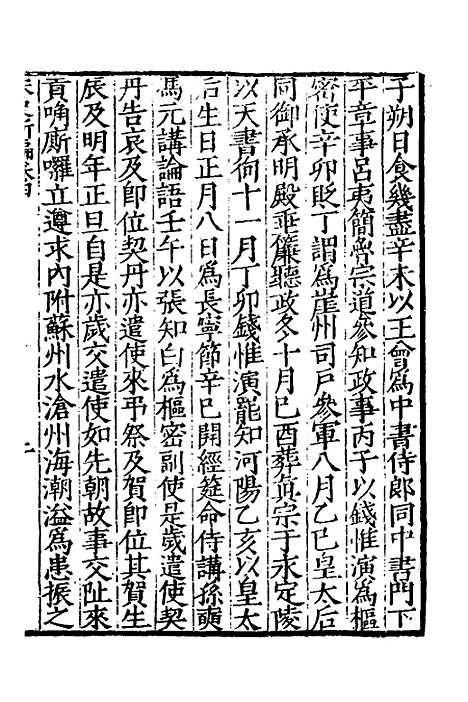 子朔日食幾盡辛未以王會爲中書侍郎同中書門下
平章事呂夷簡魯宗道參知政事丙子以錢惟演爲樞
密使辛卯貶丁謂爲崖州司戶參軍八月乙巳皇太后
同御承明殿垂簾聽政冬十月己酉葬眞宗于永定陵
以天書徇十一月丁卯錢惟演罷知河陽乙亥以皇太
后生日正月八日爲長寧節辛巳開經筵命侍講孫奭
馮元講論語壬午以張知白爲樞密副使是歲遣使契
丹告哀及卽位契丹亦遣使來弔祭及賀卽位其賀生
辰及明年正旦自是亦歲交遣使如先朝故事交阯來
貢唃廝囉立遵求內附蘇州水滄州海潮溢爲患振之
宋史新編卷四